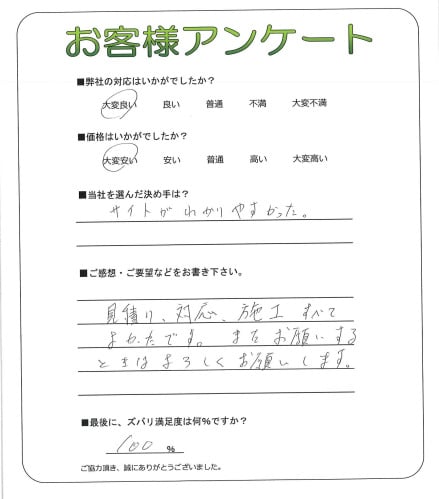 お客様アンケート
■弊社の対応はいかがでしたか？
大変良い 良い 普通 不満 大変不満
■価格はいかがでしたか？
大変安い 安い 普通 高い 大変高い
■当社を選んだ決め手は？
サイトがわかりやすかった。
■ご感想・ご要望などをお書き下さい。
見積り、対応、施工すべて
よかったです。またお願いする
ときはよろしくお願いします。
■最後に、ズバリ満足度は何%ですか？
100 %
ご協力頂き、誠にありがとうございました。